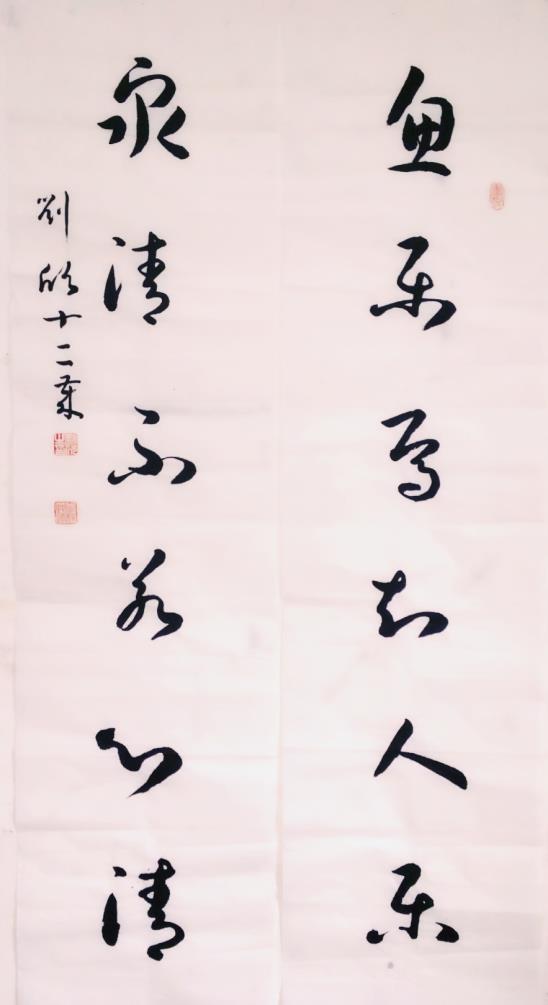 鱼乐焉知人乐
泉清不若心清
刘欣十二岁